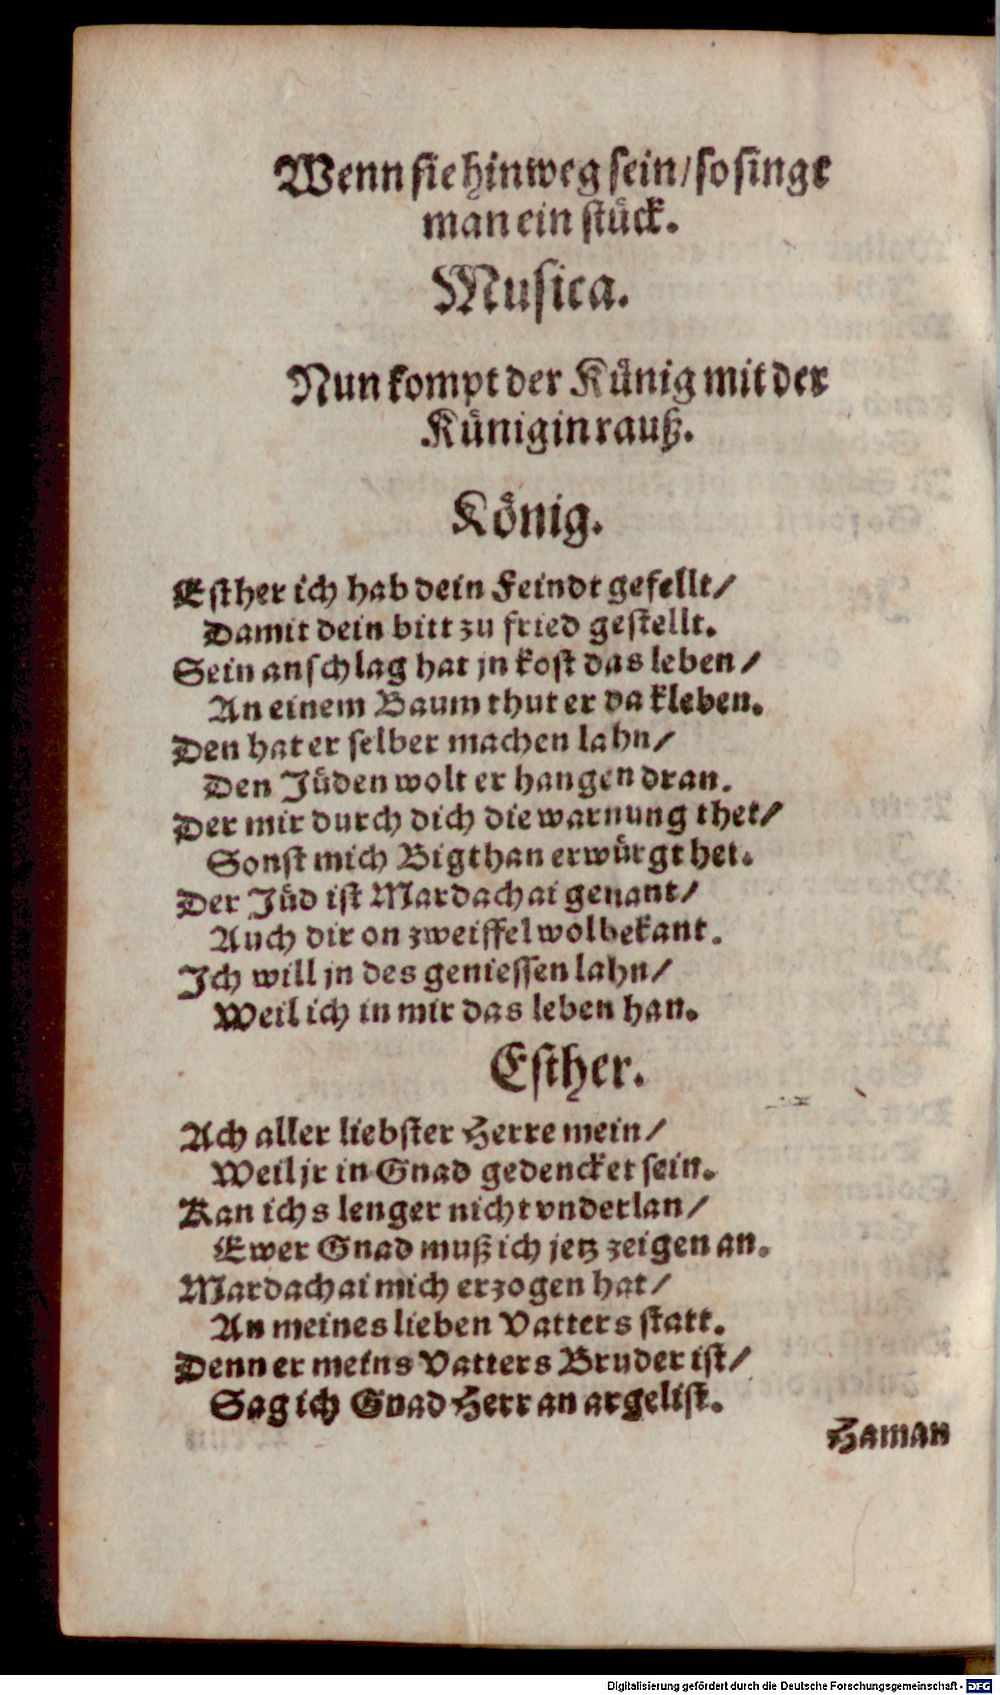 Wenn sie hinweg sein/ so singt
man ein stück.
Musica.
Nun kompt der Künig mit der
Künigin rauß.
König.
Esther ich hab dein Feindt gefellt/
Damit dein bitt zu fried gestellt.
Sein anschlag hat jn kost das leben/
An einem Baum thut er da kleben.
Den hat er selber machen lahn/
Den Jüden wolt er hangen dran.
Der mir durch dich die warnung thet/
Sonst mich Bigthan erwürgt het.
Der Jüd ist Mardachai genant/
Auch dir on zweiffel wolbekant.
Ich will jn des geniessen lahn/
Weil ich in mir das leben han.
Esther.
Ach aller liebster Herre mein/
Weil jr in Gnad gedencket sein.
Kan ichs lenger nicht vnderlan/
Ewer Gnad muß ich jetz zeigen an.
Mardachai mich erzogen hat/
An meines lieben Vatters statt.
Denn er meins Vatters Bruder ist/
Sag ich Gnad Herr an argelist.
Haman
Digitalisierung gefördert durch die Deutsche Forschungsgemeinschaft - DFG